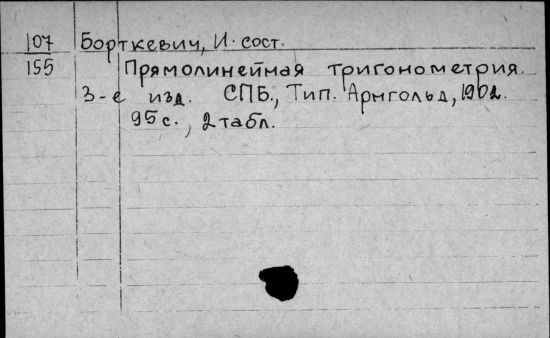 107 Борткевич, И. сост.
155 Прямолинейная тригонометрия.
3-е изд. СПБ., Тип. Арнгольд, 1902.
95 с., 2 табл.